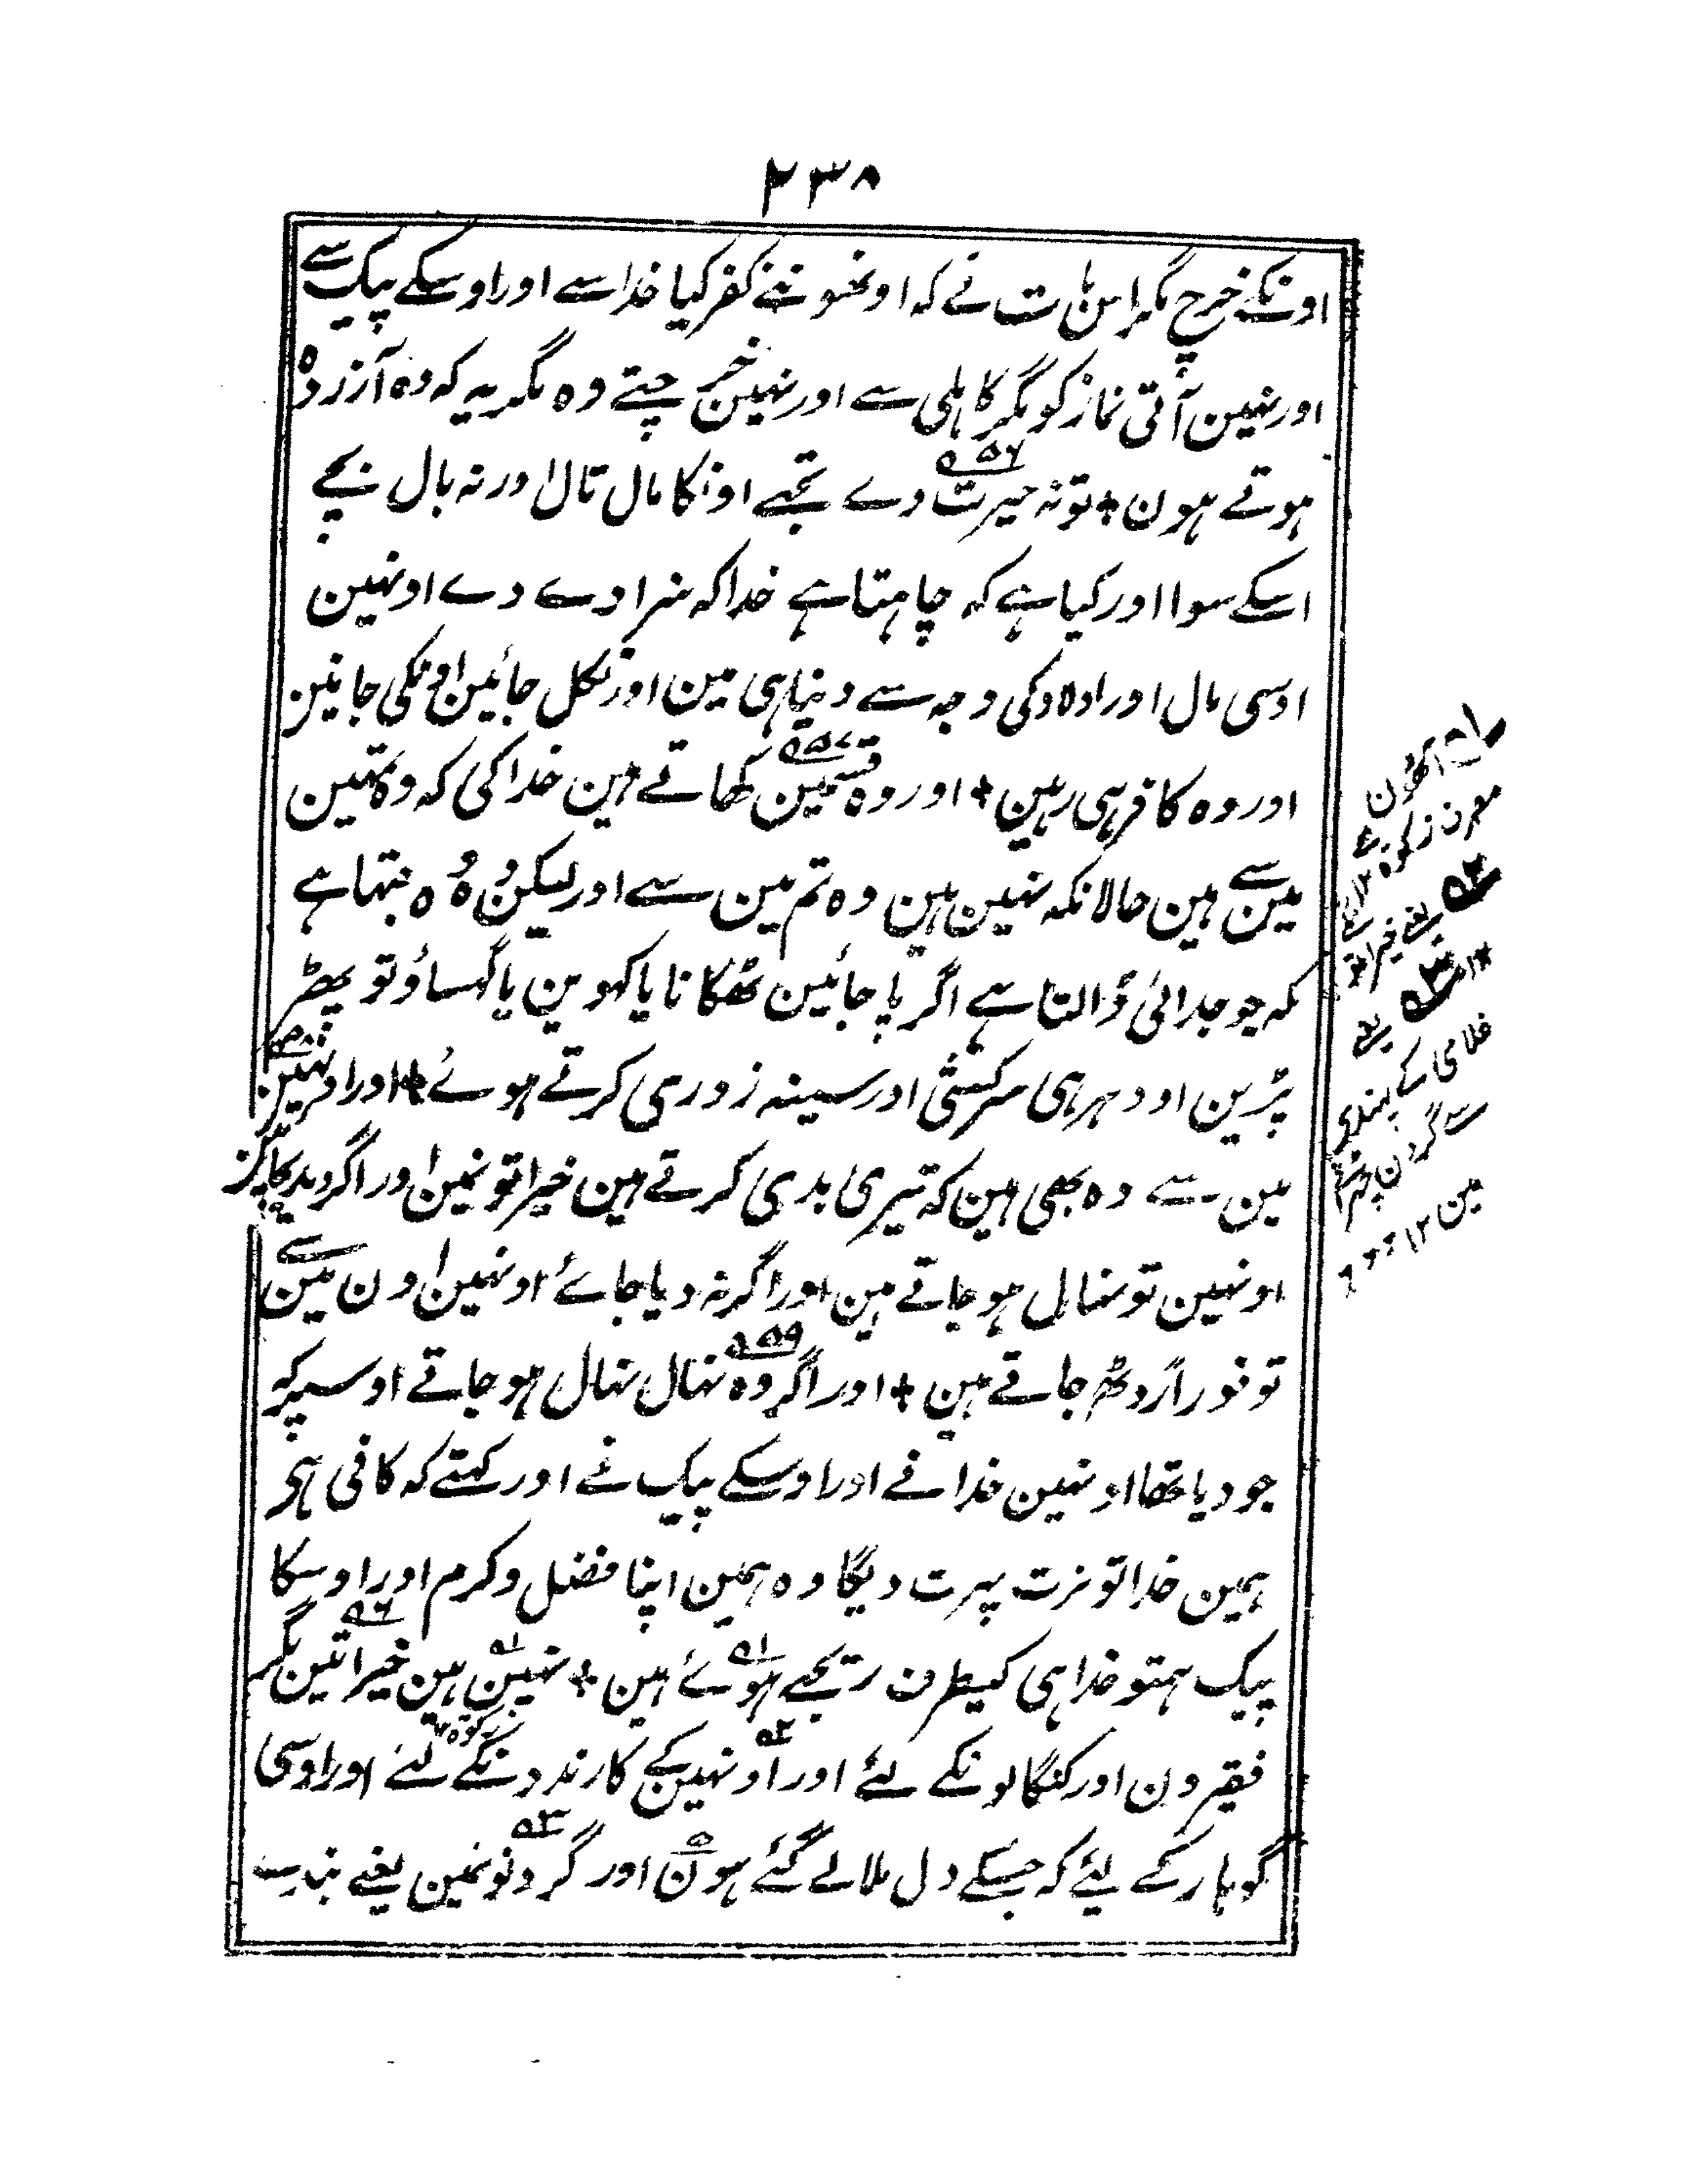 ۲۳۸
اونکے خرچ مگر اس بات نے کہ اونھونے کفر کیا خدا سے اور اوسکے پیک سے
اور نہین آتی نماز کو مگر کاہلی سے اور نہین خرچتے وہ مگر یہ کہ وہ آزردہ
ہوتے ہون + تو نہ حیرت دے تجھے اونکا مال تال اور نہ بال بچے
اسکے سوا اور کیا ہے کہ چاہتا ہے خدا کہ سزا دے دے اونہین
اوسی مال اور اولاد کی وجہ سے دنیا ہی مین اور نکل جائین اونکی جانین
اور وہ کافر ہی رہین + اور وہ قسمین کھاتے ہین خدا کی کہ وہ تمہین
مین سے ہین حالانکہ نہین ہین وہ تم مین سے اور لیکن وہ وہ جتہا ہے
کہ جو جدائی ڈالتا ہے اگر پا جائین ٹھکانا یا کہوہین یا گھساؤ تو پھٹ
پڑین اودہر ہی سرکشی اور سینہ زوری کرتے ہوئے + اور اونہین
مین سے وہ بھی ہین کہ تیری بدی کرتے ہین خیراتونمین اور اگر دیدیا جائے
اونہین تو نہال ہو جاتے ہین اور اگر نہ دیا جائے اونہین اون مین سے
تو فوراً روٹھ جاتے ہین + اور اگر وہ نہال نہال ہو جاتے اوسپر کہ
جو دیا تھا اونہین خدا نے اور اوسکے پیک نے اور کہتے کہ کافی ہی
ہمین خدا تو نرت پہرت دیگا وہ ہمین اپنا فضل و کرم اور اوسکا
پیک ہمتو خدا ہی کیطرف ریجھے ہوئے ہین + نہین ہین خیراتین مگر
فقیرون اور کنگالونکے لئے اور اونہین کے کارندونکے لئے اور اوسی
گوہار کے لیئے کہ جسکے دل ملالے گئے ہون اور گردنونمین یعنے بند سے
آٹھون
مصرف زکوۃ
یعنے
یعنے
غلامی کے پھندے
سے گردن
مین ۱۲